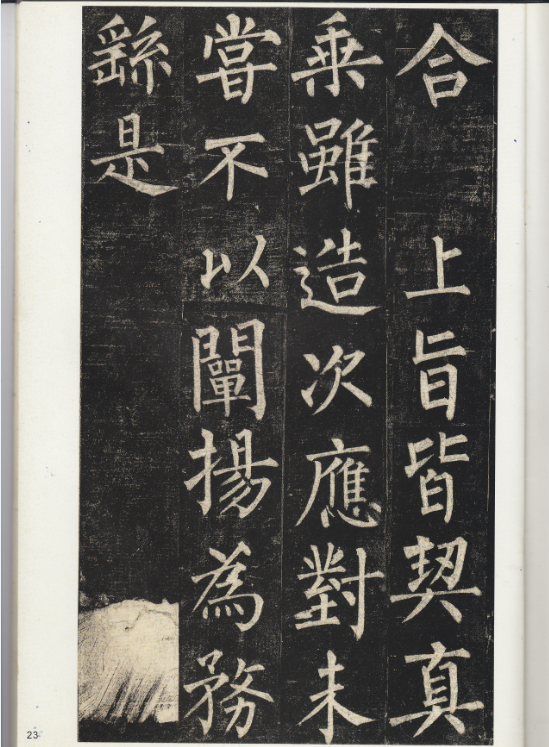 合 上旨皆契真
乘雖造次應對未
甞不以闡揚為務
繇是
23